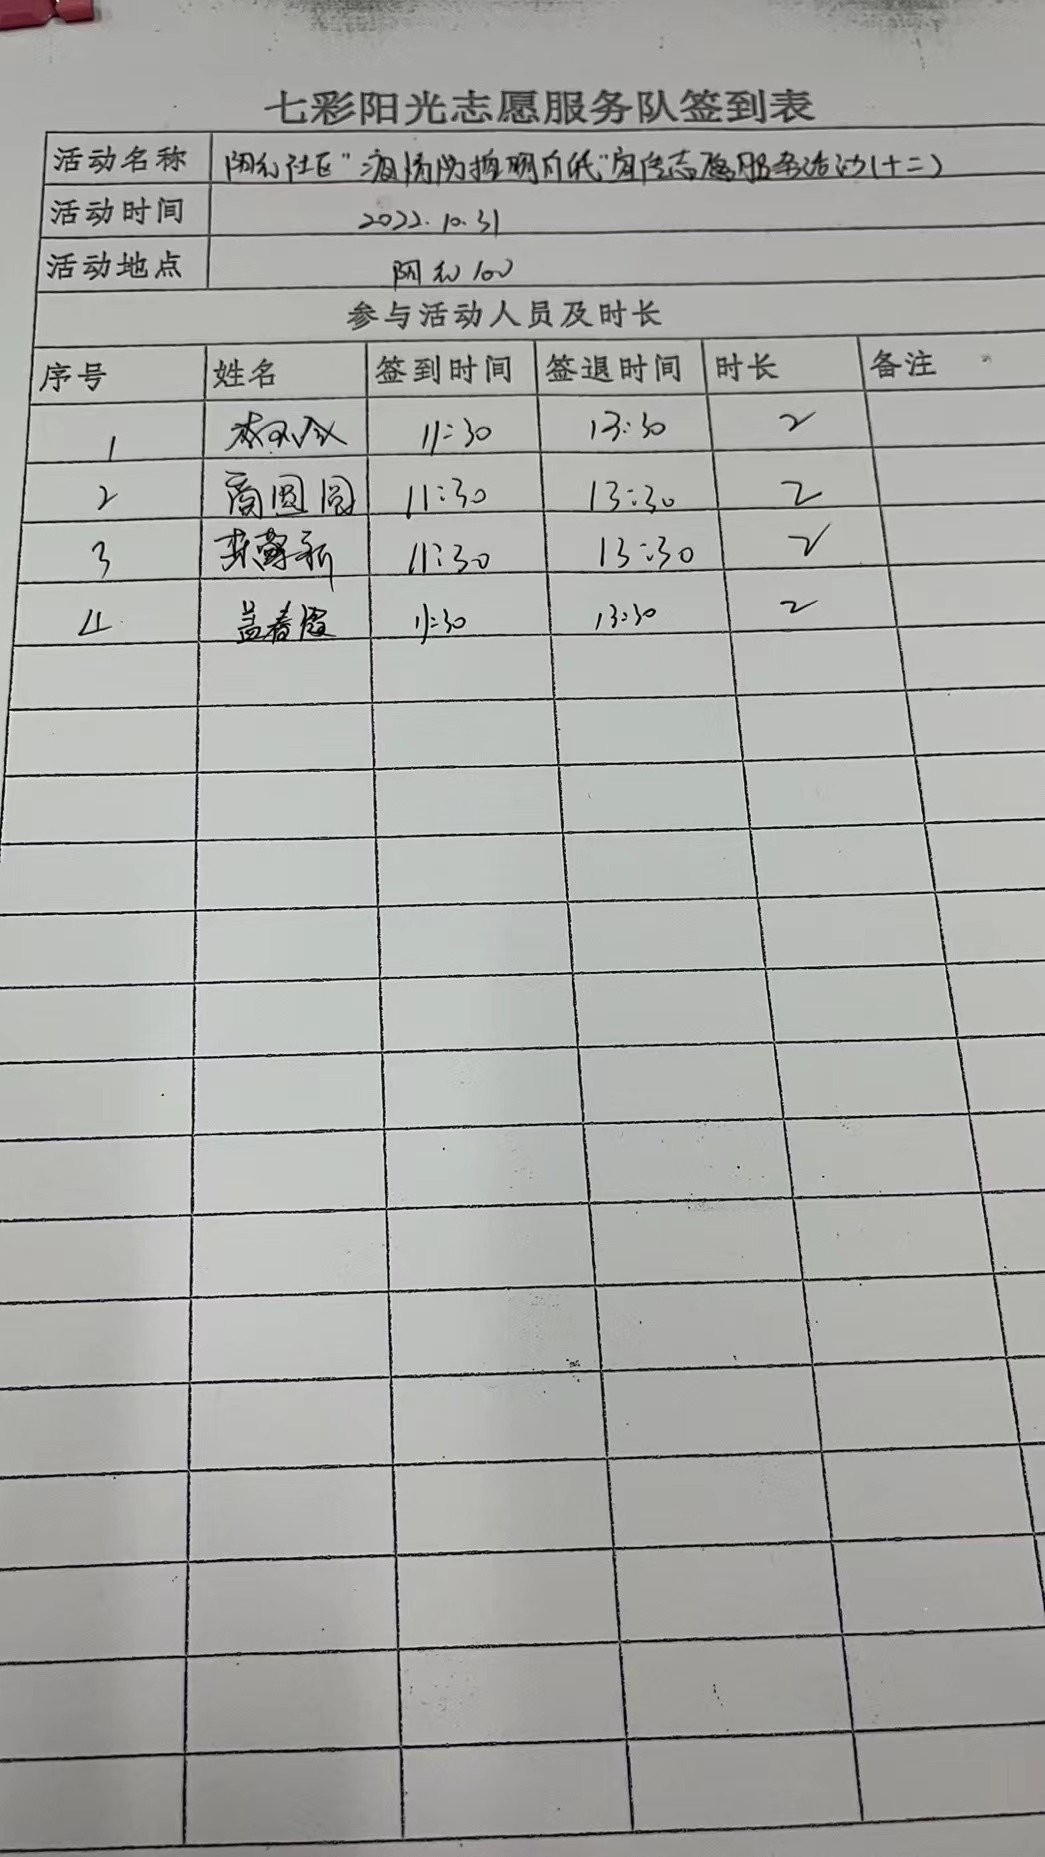 七彩阳光志愿服务队签到表
活动名称 阳和社区"疫情防控明白纸"宣传志愿服务活动(十二)
活动时间 2022.10.31
活动地点 阳和100
参与活动人员及时长
序号 姓名 签到时间 签退时间 时长 备注
1 11:30 13:30 2
2 商圆圆 11:30 13:30 2
3 11:30 13:30 2
4 盖春霞 11:30 13:30 2